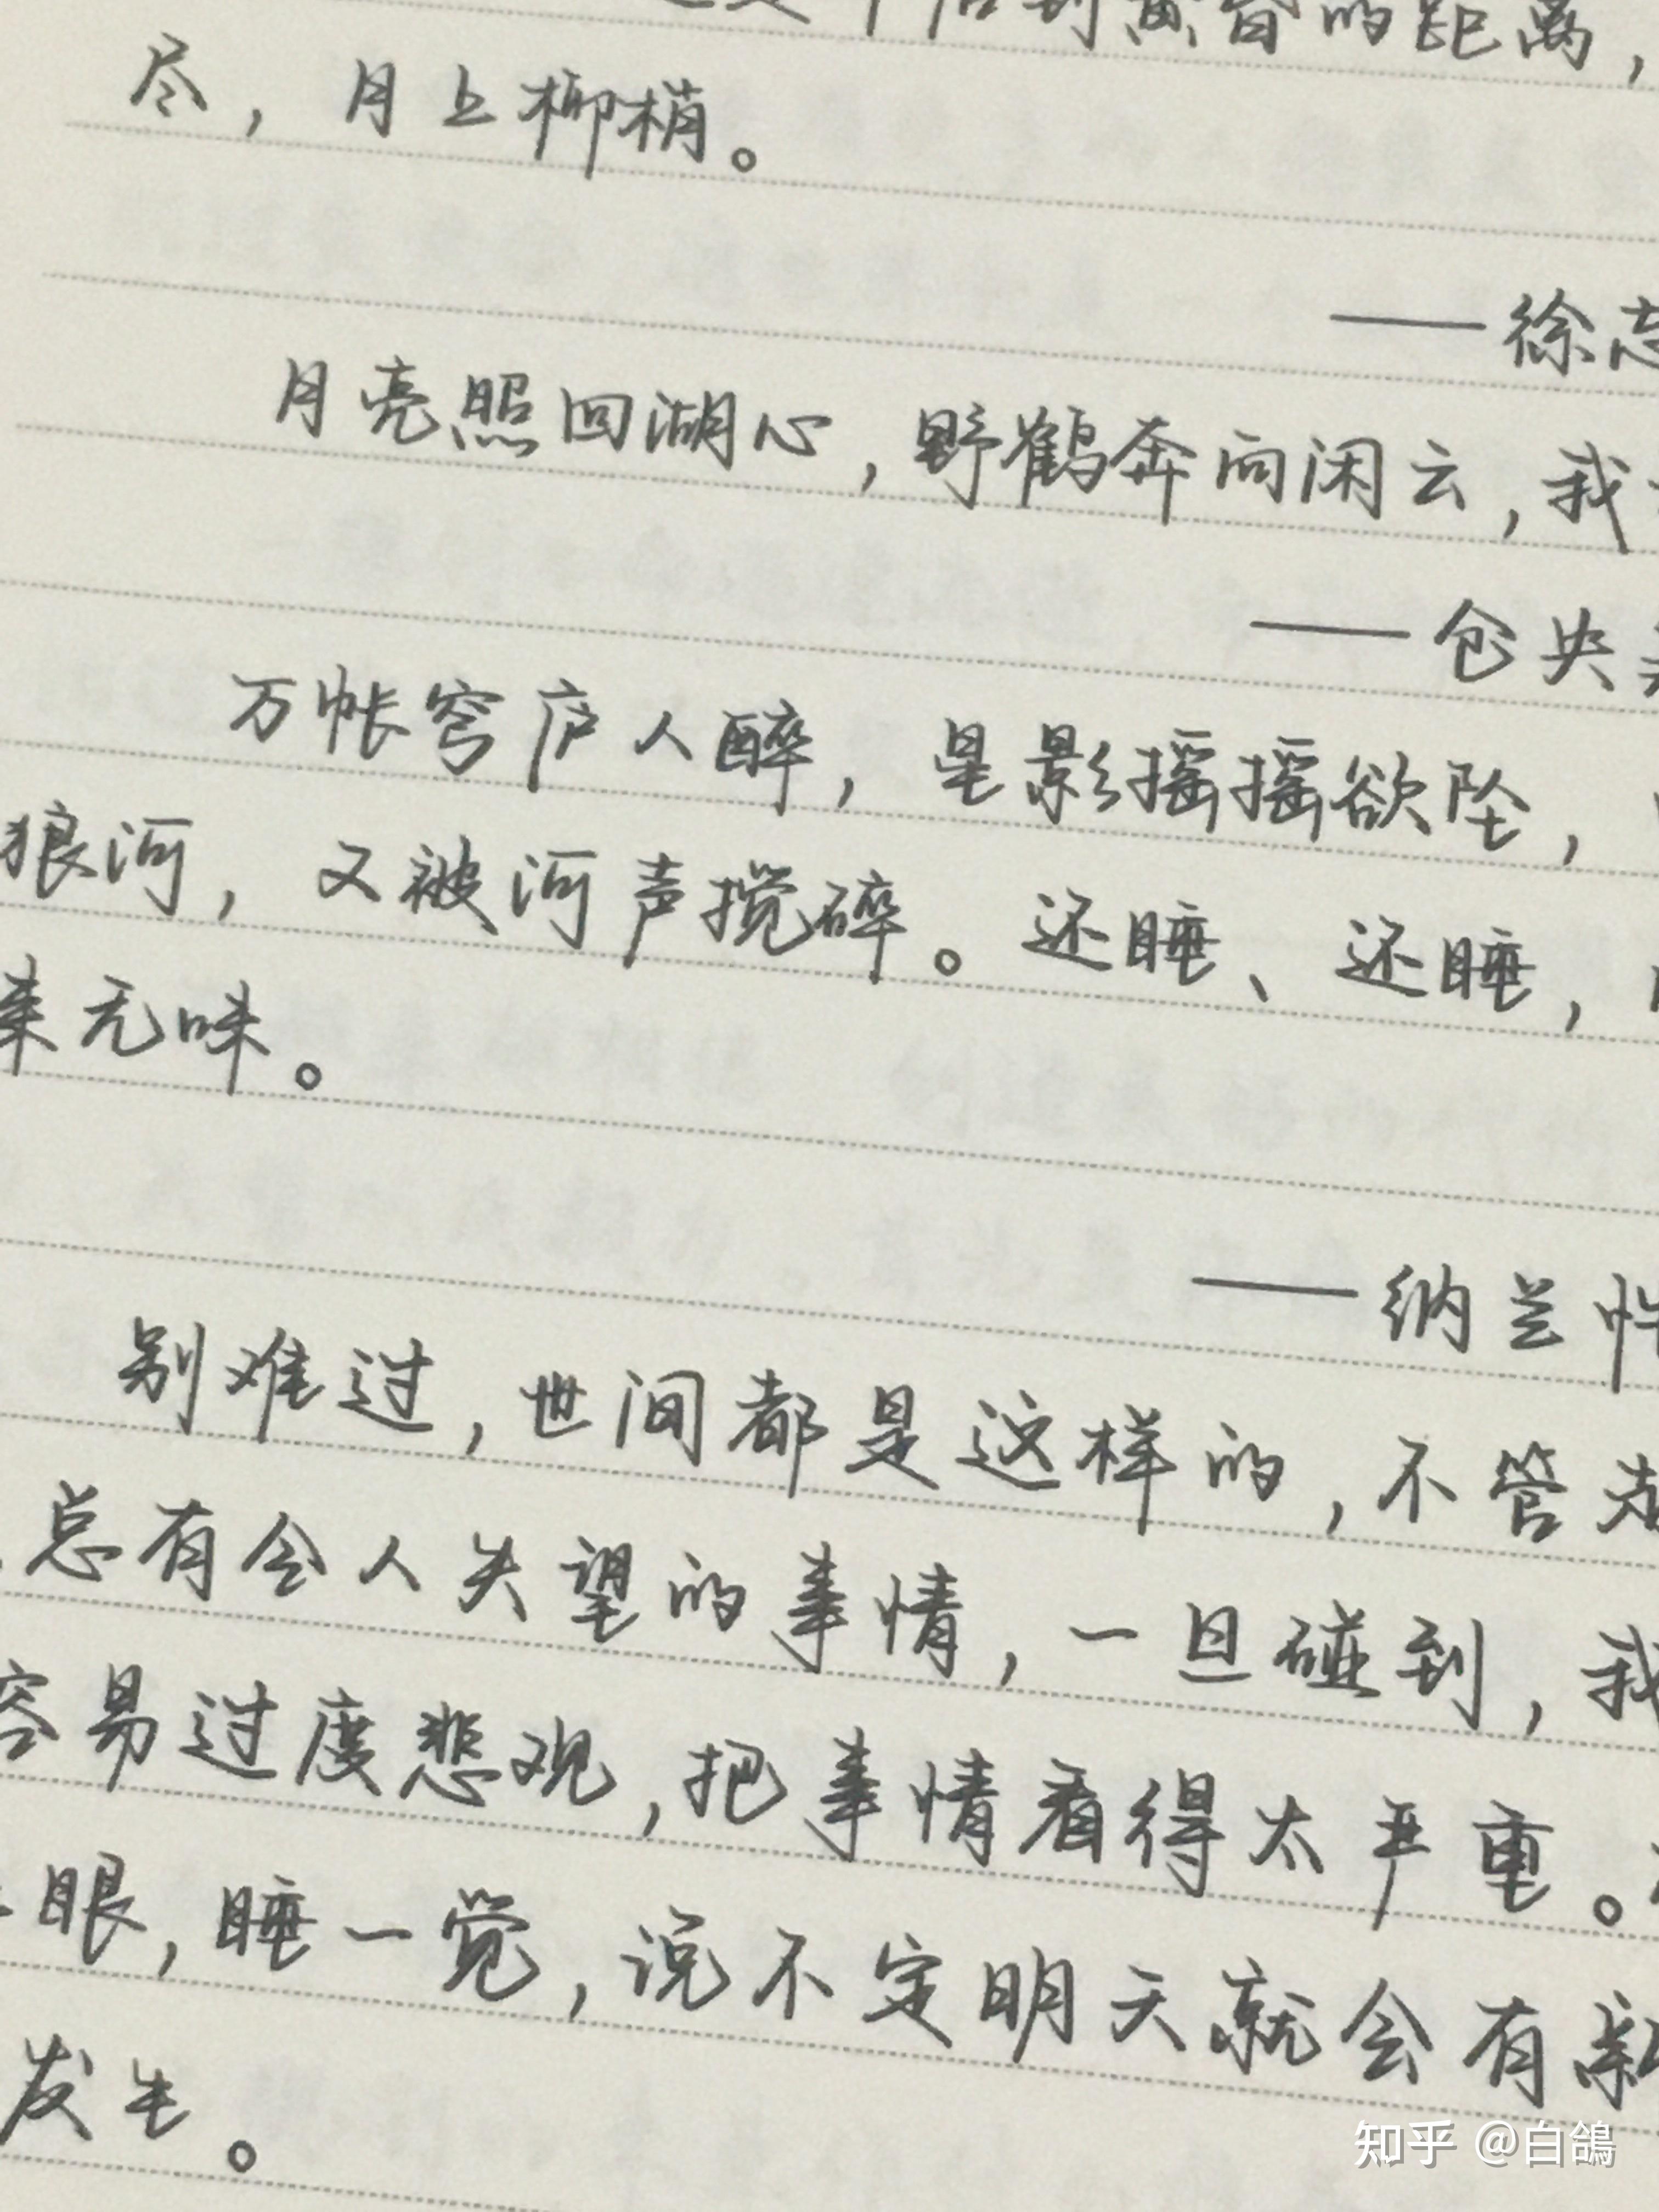 到黄昏的距离，
尽，月上柳梢。
——徐志
月亮照回湖心，野鹤奔向闲云，我
——仓央
万帐穹庐人醉，星影摇摇欲坠，
狼河，又被河声搅碎。还睡、还睡，
来无味。
——纳兰性
别难过，世间都是这样的，不管走
总有令人失望的事情，一旦碰到，我
容易过度悲观，把事情看得太严重。
眼，睡一觉，说不定明天就会有新
发生。
知乎 @白鸽